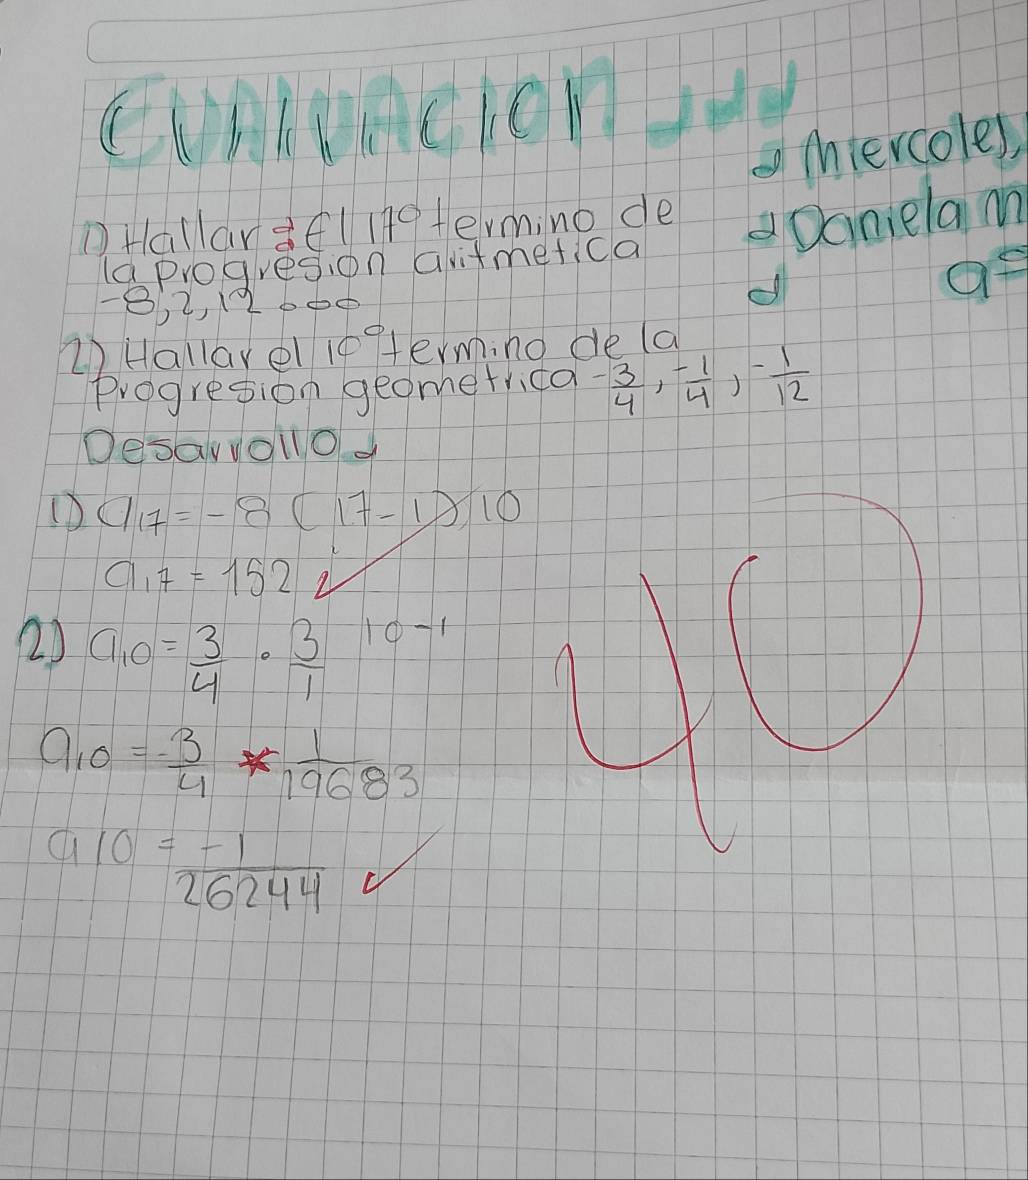 EVALUACION
Miercoles,
Daniela m
9º
1) Hallar El 17º termino de
la progresion aritmetica
-8, 2, 12 ...
2) Hallar el 10º termino de la
Progresion geometrica -3/4, -1/4, -1/12
Desarrollo
1) a17 = -8 (17-1) 10
a17 = 152
2) a10 = 3/4 . 3/1 10-1
a10 = -3/4 * 1/19683
a10 = -1/26244
40